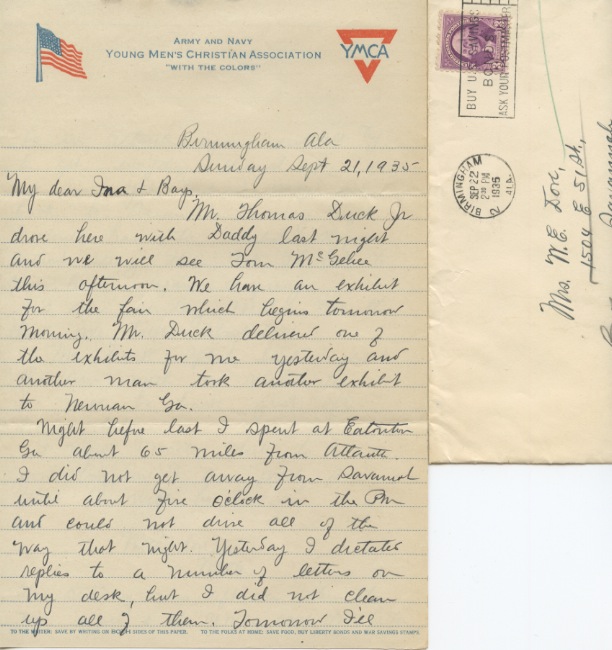 ARMY AND NAVY
YOUNG MEN'S CHRISTIAN ASSOCIATION
"WITH THE COLORS"
YMCA
Birmingham Ala
Sunday Sept 21, 1935
My dear Ina & Boys,
Mr. Thomas Duck Jr
drove here with Daddy last night
and we will see Tom McGehee
this afternoon. We have an exhibit
for the fair which begins tomorrow
morning. Mr. Duck delivered one of
the exhibits for me yesterday and
another man took another exhibit
to Newnan Ga.
Night before last I spent at Eatonton
Ga about 65 miles from Atlanta.
I did not get away from Savanah
until about five o'clock in the Pm
and could not drive all of the
way that night. Yesterday I dictated
replies to a number of letters on
my desk, but I did not clean
up all of them. Tomorrow I'll
TO THE WRITER: SAVE BY WRITING ON BOTH SIDES OF THIS PAPER. TO THE FOLKS AT HOME: SAVE FOOD, BUY LIBERTY BONDS AND WAR SAVINGS STAMPS
BUY U.S.
BO
ASK YOUR POSTMASTER
BIRMINGHAM
SEP 22
2 PM
1935
2 ALA.
Mrs. W.E.
1504 E 51 St.,